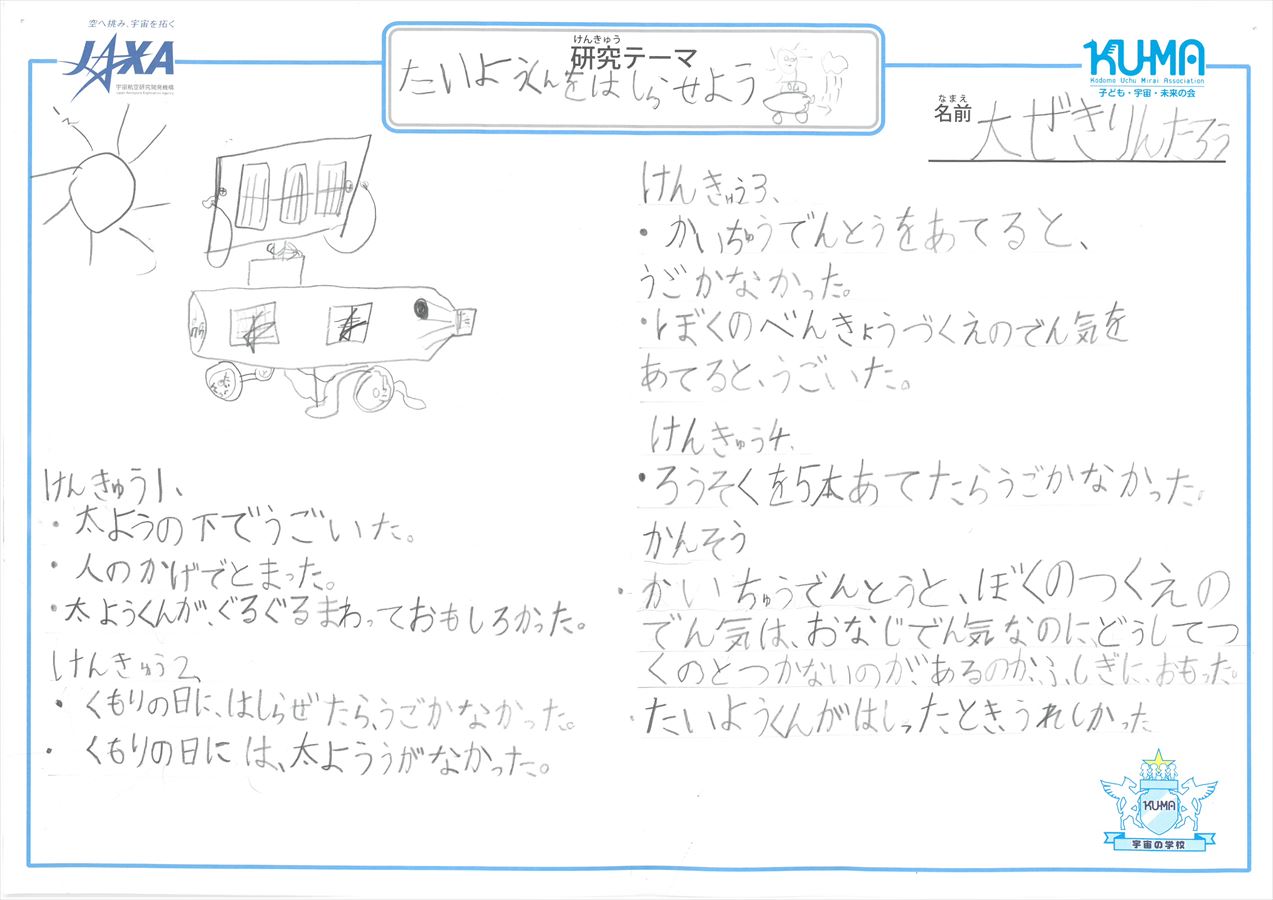 空へ挑み、宇宙を拓く
JAXA
宇宙航空研究開発機構
Japan Aerospace Exploration Agency
けんきゅう
研究テーマ
たいようくんをはしらせよう
KUMA
Kodomo Uchu Mirai Association
子ども・宇宙・未来の会
なまえ
名前 大ぜきりんたろう
けんきゅう1、
・太ようの下でうごいた。
・人のかげでとまった。
・太ようくんが、ぐるぐるまわっておもしろかった。
けんきゅう2、
・くもりの日に、はしらぜたら、うごかなかった。
・くもりの日には、太よううがなかった。
けんきゅう3、
・かいちゅうでんとうをあてると、
うごかなかった。
・ぼくのべんきょうづくえのでん気を
あてると、うごいた。
けんきゅう4、
・ろうそくを5本あてたらうごかなかった。
かんそう
・かいちゅうでんとうと、ぼくのつくえの
でん気は、おなじでん気なのに、どうしてつ
くのとつかないのが、あるのか、ふしぎに、おもった。
・たいようくんがはしったとき、うれしかった
KUMA
宇宙の学校